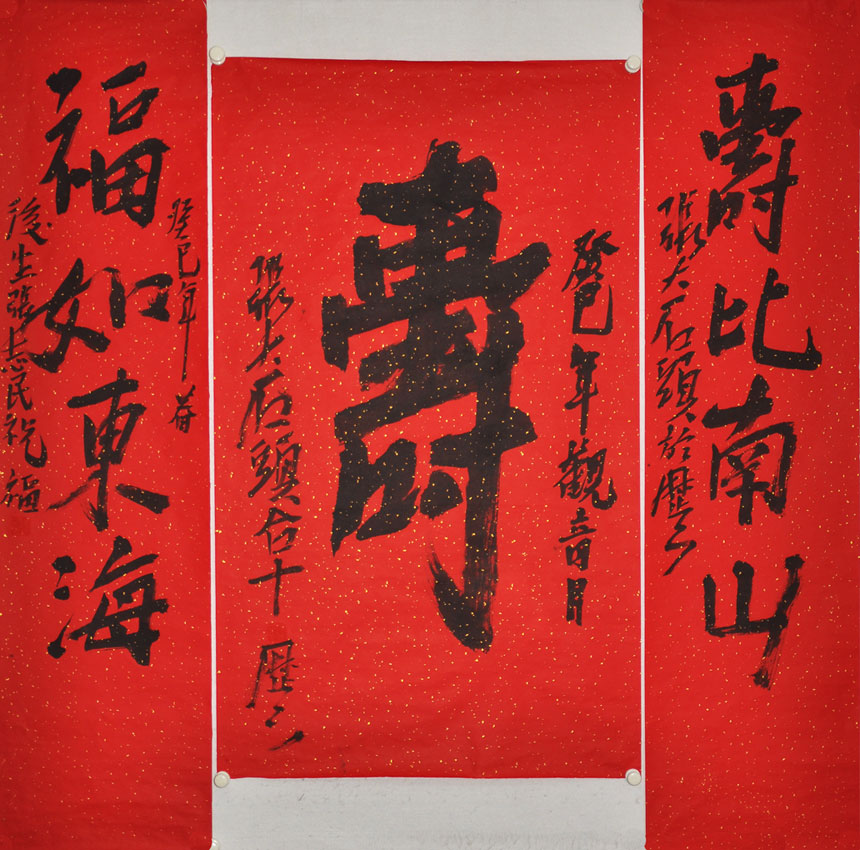 壽比南山
張大石頭於歷下
癸巳年觀音月
壽
張大石頭
歷下
癸巳年春
福如東海
後生張志民祝福